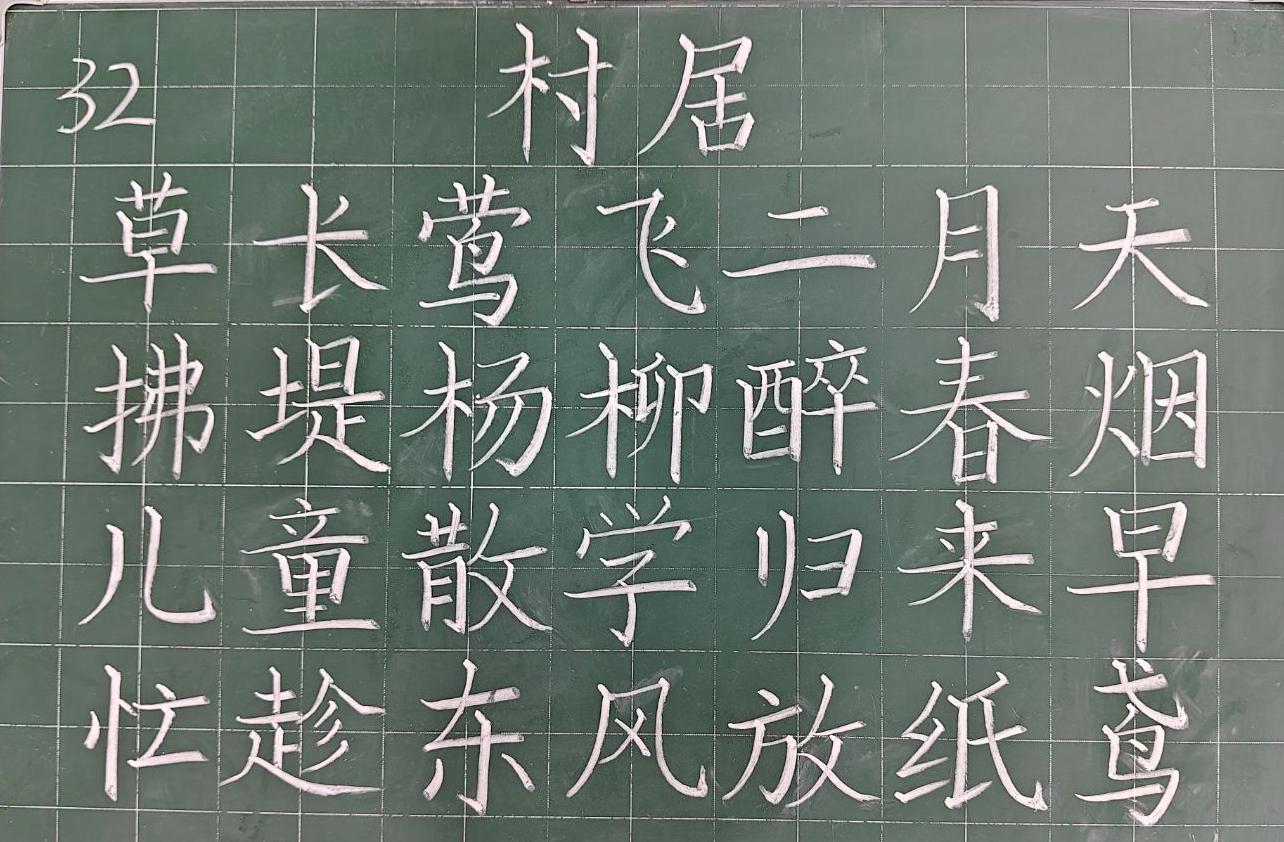 32 村居
草长莺飞二月天
拂堤杨柳醉春烟
儿童散学归来早
忙趁东风放纸鸢